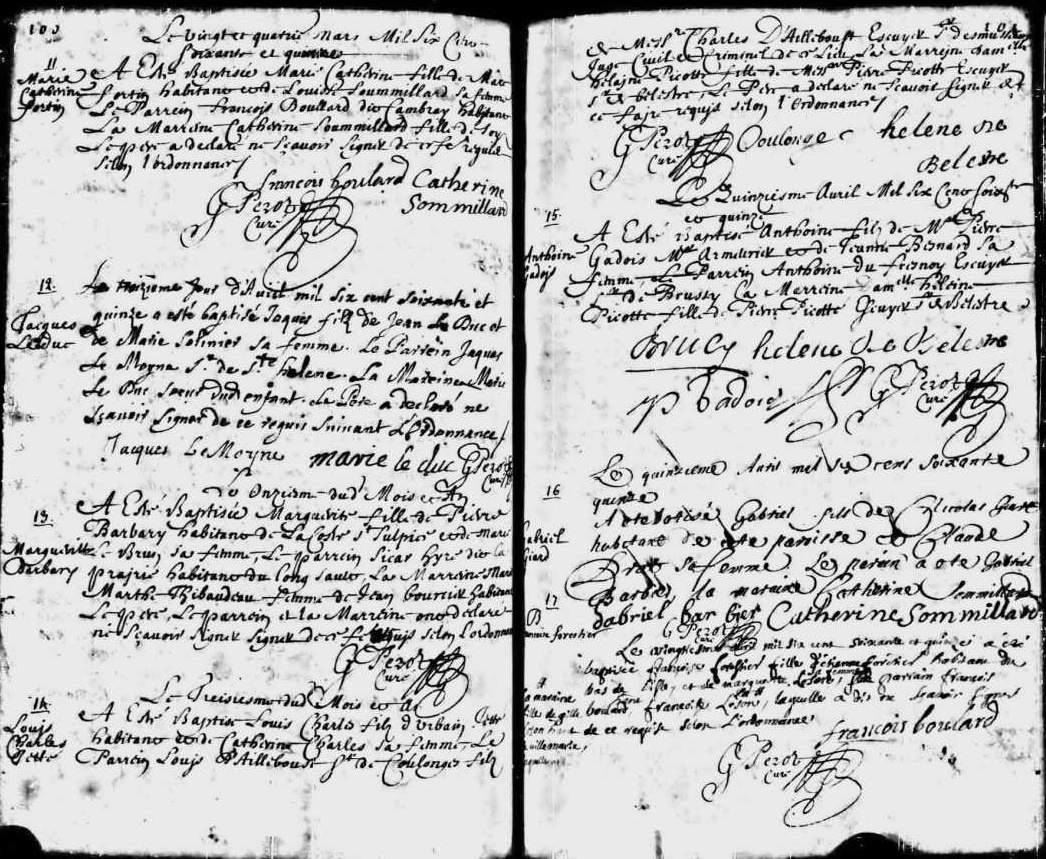 100
Le vingt et quatrie mars Mil Six Cens
soixante et quinze
11
Marie
Catherine
fortin
A Esté Baptisée Marie Catherine fille de Marc
fortin habitant et de Louise Soummillard sa femme
Le Parrein François Boullard dit Cambray habitant
La Marreine Catherine Soummillard fille de
Le pere a declaré ne sçavoir signer de ce requis
selon l'ordonnance
francois boulard Catherine
Sommillard
G Perot
Curé
12.
Jacques
Le duc
Le treizieme jour d'Avril mil six cent soixante et
quinze a esté baptisé Jaques filz de Jean Le Duc et
de Marie Solinier sa femme. Le Parrein Jaques
Le Moyne Sr. de Ste helene. La Mareine Marie
Le Duc soeur dud enfant. Le Pere a declaré ne
sçavoir signer de ce requis suivant L'Ordonnance
Jacques LeMoyne marie le duc G Perot
Curé
Le Onziesme dud Mois et An
13.
Marguerite
Barbary
A Esté Baptisée Marguerite fille de Pierre
Barbary habitant de La Coste St Sulpice et de Marie
Le Brun sa femme, Le parrein Sicar hyre dit la
prairie habitant du long sault, La Marreine
Marthe Thibaudeau femme de Jean bourcik habitant
Le pere, Le parrein et la Marreine ont declaré
ne sçavoir signer de ce requis selon l'ordonnance
G Perot
Curé
Le Treisiesme dud Mois et A
14.
Louis
Charles
Jette
A Esté Baptisé Louis Charles filz d'Urbain Jette
habitant et de Catherine Charles sa femme, Le
Parrein Louis D'Aillebout Sr de Coulonges filz
101
de Messr. Charles D'Aillebout Escuyer Sr desmusseaux
Juge Civil et Criminel de ce Lieu La Marreine Damelle
helaine Picotte fille de Messr Pierre Picotte Escuyer
Sr de belestre, Le Pere a declaré ne sçavoir signer
ce faire requis selon l'Ordonnance
G Perot Coulonge helene de
Curé Belestre
Le Quinziesme Avril Mil Six Cens Soixte
et quinze
15.
Anthoine
Gadois
A Esté Baptisé Anthoine filz de Mr Pierre
Gadois Me Armurier et de Jeanne Besnard sa
femme, Le Parrein Anthoine du fresnoy Escuyer
Sr De Brussy La Marreine Damelle heleine
Picotte fille de Pierre Picotte Escuyer Sr de Belestre
BRUCY helene de Belestre
P Gadois G Perot
Curé
Le quinzieme Avril mil six cens soixante
quinze
16
Gabriel
Giard
A eté batisé Gabriel fils de Nicolas Giard
habitant de cette paroisse et Claude
Prat sa femme. Le perain a eté Gabriel
Barbier, la maraine Catherine Sommillard
gabriel barbier Catherine Sommillard
G Perot
Curé
17
forestier
Le vingtiesme avril mil six cens soixante et quinze a eté
baptisée françoise forestier fille d'étienne forestier habitant du
bas de l'isle, et de marguerite Loson, sa femme, parrain françois
boulard, françoise Loson, laquelle a dit ne scavoir signer
de ce requise selon l'ordonnance
la maraine
fille de gille
villemarie,
francois boulard
G Perot
Curé